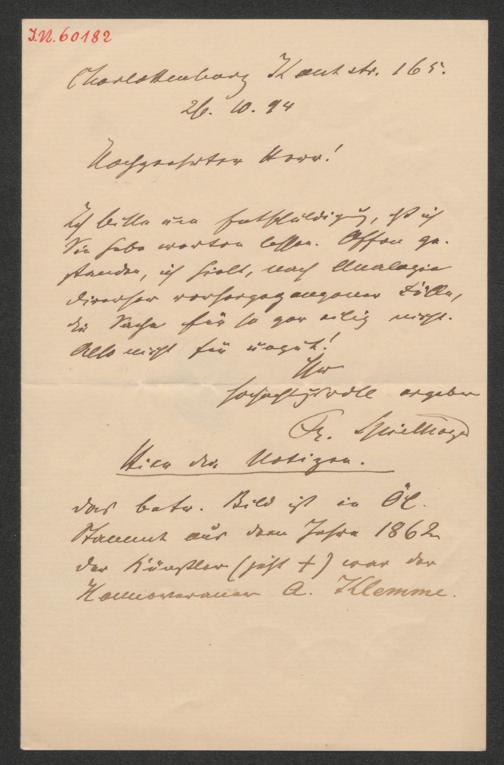 I.N. 60182
Charlottenburg Kantstr. 165.
26. 10. 94
Hochgeehrter Herr!
Ich bitte um Entschuldigung, daß ich
Sie habe warten lassen. Offen ge-
standen, ich hielt, nach Analogie
diverser vorhergegangener Fälle,
die Sache für so gar eilig nicht.
Also nicht für ungut!
Ihr
hochachtungsvoll ergeben
Fr. Spielhagen
Hier die Notizen.
Das betr. Bild ist in Öl.
Stammt aus dem Jahre 1862
Der Künstler (jetzt +) war der
Hannoveraner A. Klemme.